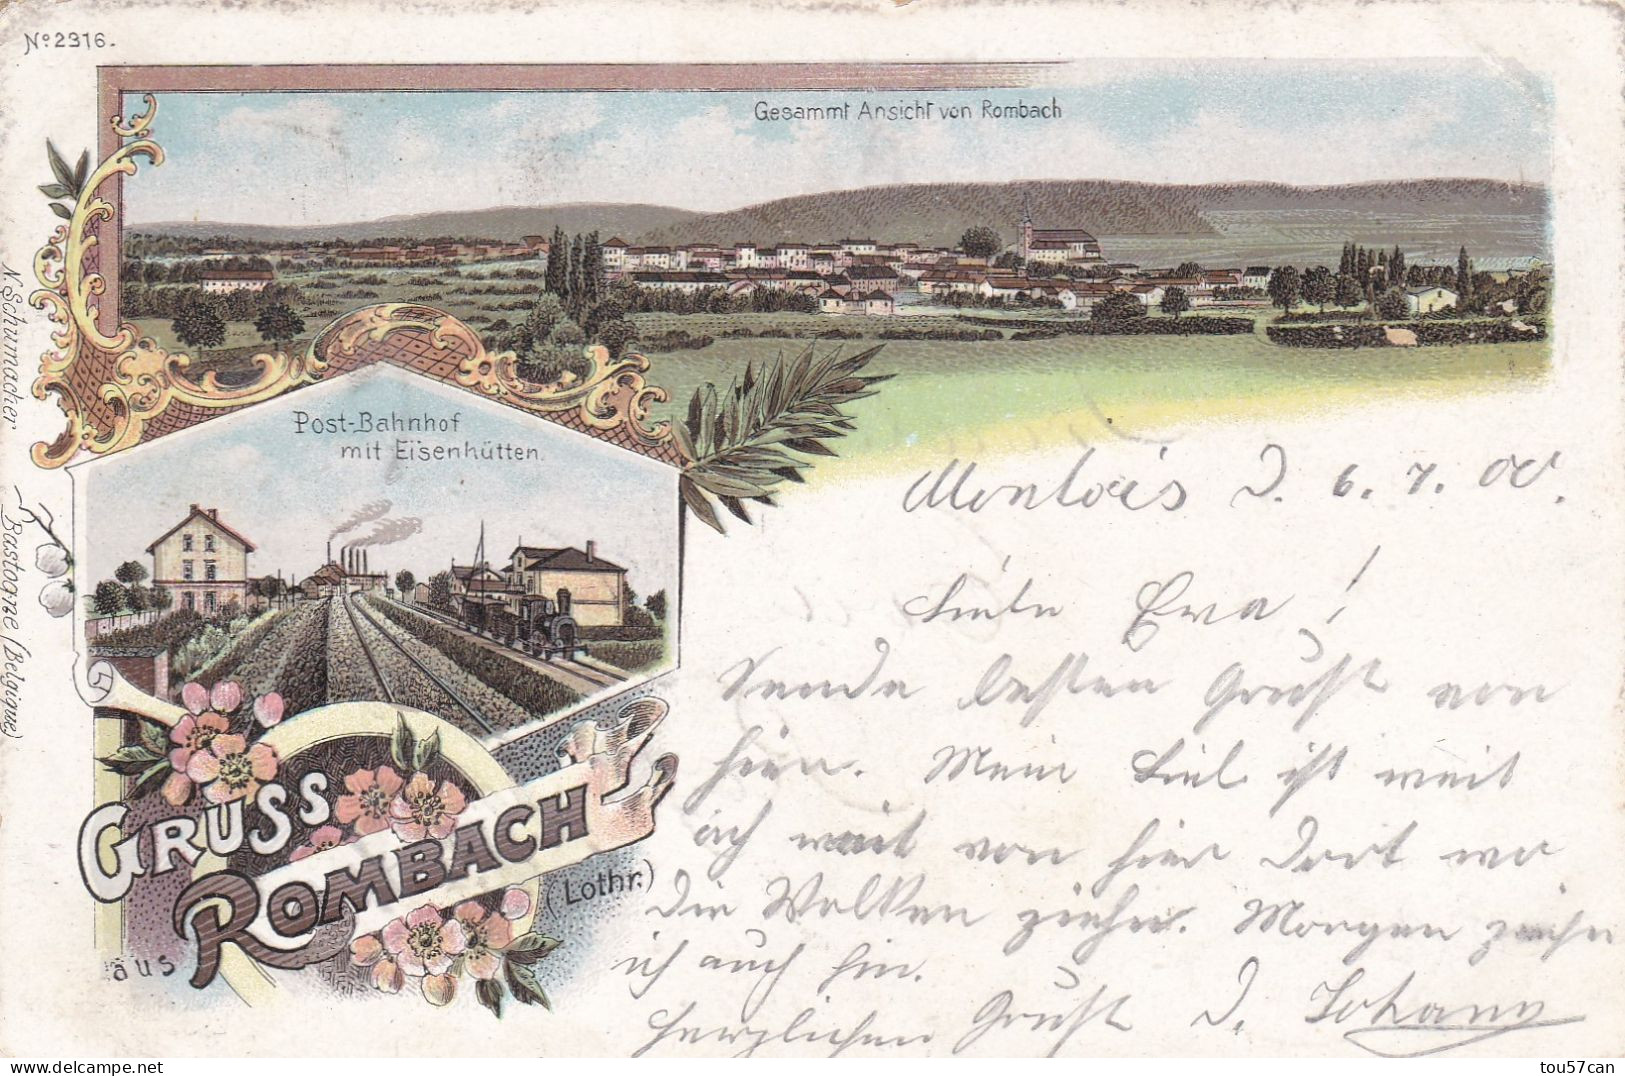 No 2316.
Gesammt Ansicht von Rombach
N. Schumacher Bastogne (Belgique)
Post-Bahnhof
mit Eisenhütten.
GRUSS
aus ROMBACH
(Lothr.)
Montois D. 6. 7. 00.
Liebe Eva!
Sende besten Gruß von
hier. Mein Ziel ist weit
ach weit von hier dort wo
die Wolken ziehen. Morgen ziehe
ich auch hin.
Herzlichen Gruß D. Johann
delcampe.net
tou57can